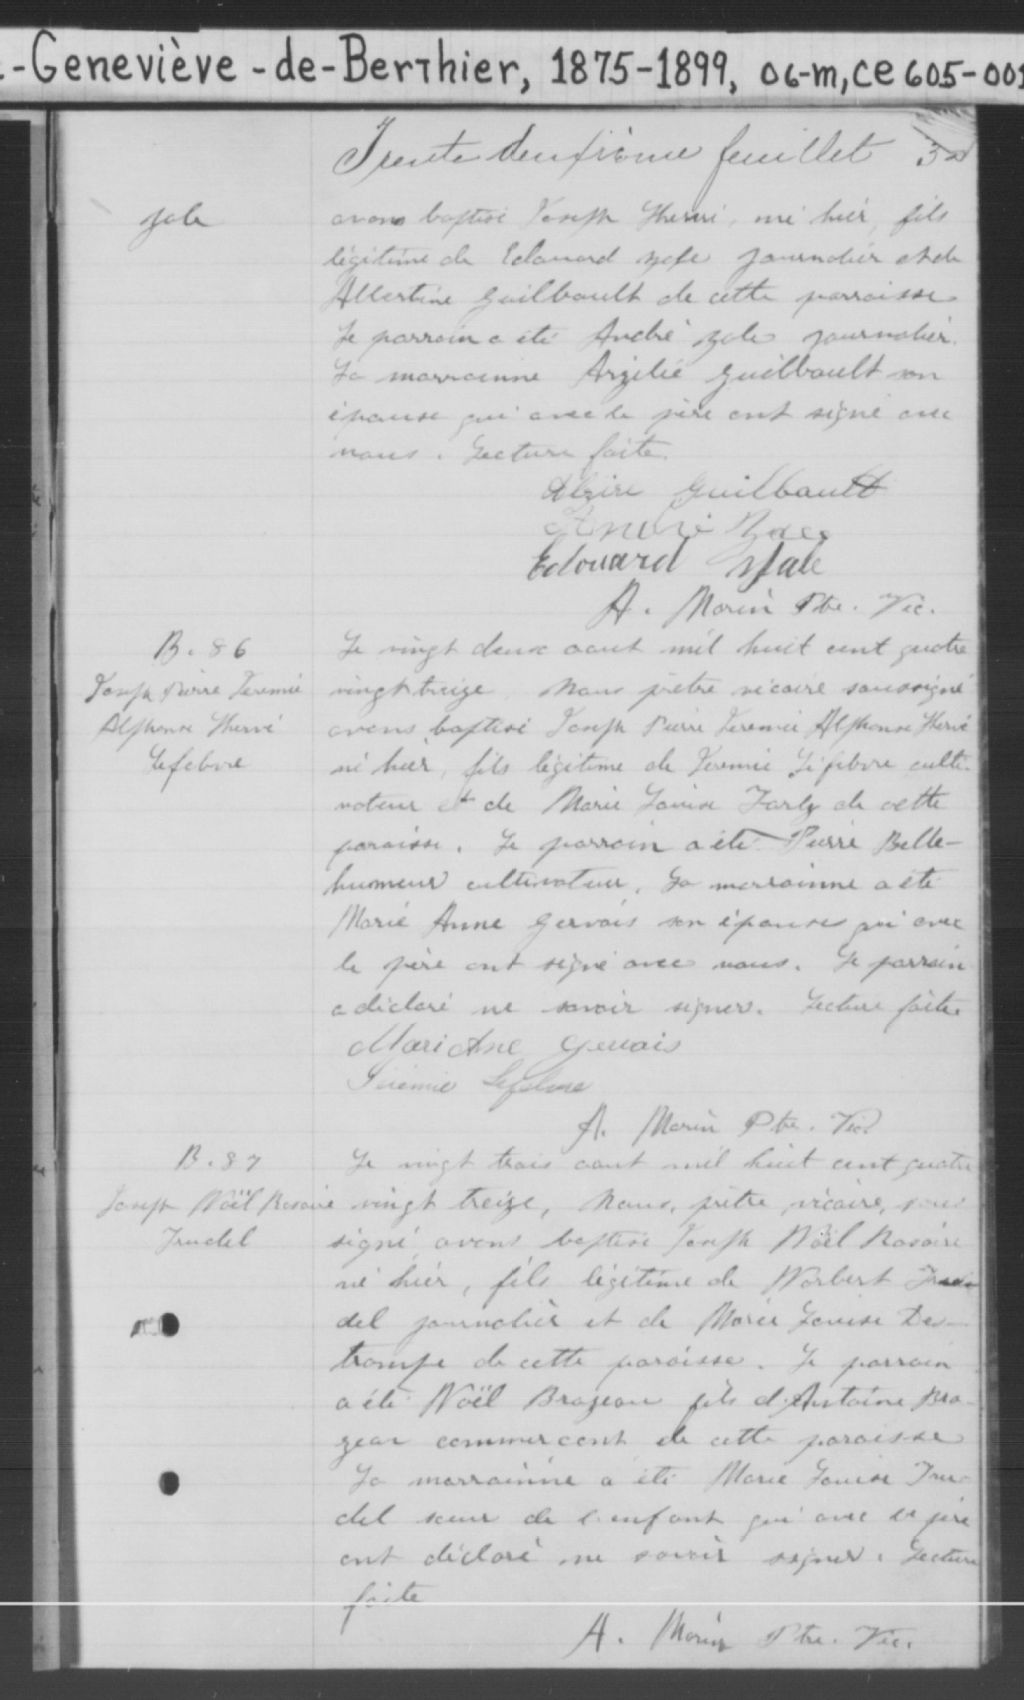 -Geneviève-de-Berthier, 1875-1899, 06-m, ce 605-001
Trente deuxième feuillet 32
avons baptisé Joseph Henri, né hier, fils
légitime de Edouard journalier et de
Albertine Guilbault de cette parroisse
Le parrain a été André journalier.
La marrainne Guilbault son
épouse qui avec le père ont signé avec
nous. Lecture faite.
Alzire Guilbault
André
Edouard
A. Morin Ptre. Vic.
B. 86
Joseph Pierre Jeremie
Alphonse Hervé
Lefebvre
Le vingt deux aout mil huit cent quatre
vingt treize, Nous prêtre vicaire soussigné
avons baptisé Joseph Pierre Jeremie Alphonse Hervé
né hier, fils légitime de Jeremie Lefebvre culti-
vateur et de Marie Louise de cette
paroisse. Le parrain a été Pierre Belle-
humeur cultivateur. La marrainne a été
Marie Anne Gervais son épouse qui avec
le père ont signé avec nous. Le parrain
a déclaré ne savoir signer. Lecture faite
Mari Ane Gervais
Jeremie Lefebvre
A. Morin Ptre. Vic.
B. 87
Joseph Noël Rosaire
Trudel
Le vingt trois aout mil huit cent quatre
vingt treize, Nous, prêtre, vicaire, sous
signé, avons baptisé Joseph Noël Rosaire
né hier, fils légitime de Norbert Tru-
del journalier et de Marie Louise Des-
trampe de cette paroisse. Le parrain
a été Noël Brazeau fils d'Antoine Bra-
zeau commercant de cette paroisse
La marrainne a été Marie Louise Tru-
del soeur de l'enfant qui avec le père
ont déclaré ne savoir signer. Lecture
faite
A. Morin Ptre. Vic.